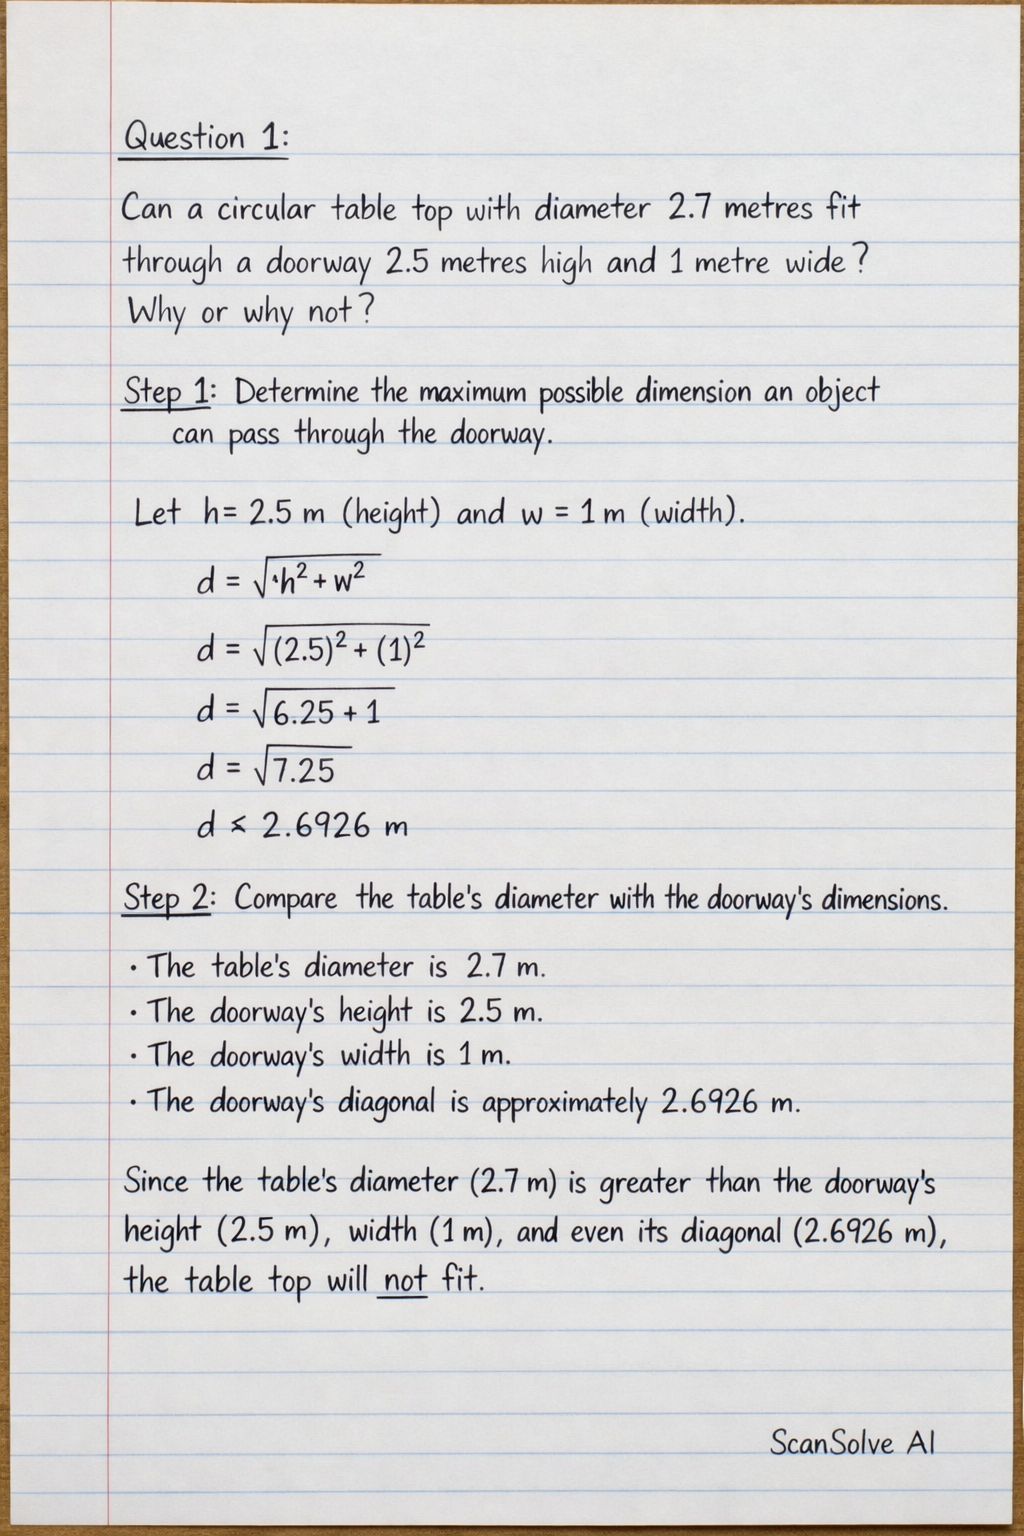 Question 1:
Can a circular table top with diameter 2.7 metres fit
through a doorway 2.5 metres high and 1 metre wide?
Why or why not?
Step 1: Determine the maximum possible dimension an object
can pass through the doorway.
Let h= 2.5 m (height) and w = 1 m (width).
d = √h² + w²
d = √(2.5)² + (1)²
d = √6.25 + 1
d = √7.25
d ≈ 2.6926 m
Step 2: Compare the table's diameter with the doorway's dimensions.
· The table's diameter is 2.7 m.
· The doorway's height is 2.5 m.
· The doorway's width is 1 m.
· The doorway's diagonal is approximately 2.6926 m.
Since the table's diameter (2.7 m) is greater than the doorway's
height (2.5 m), width (1 m), and even its diagonal (2.6926 m),
the table top will not fit.
ScanSolve AI